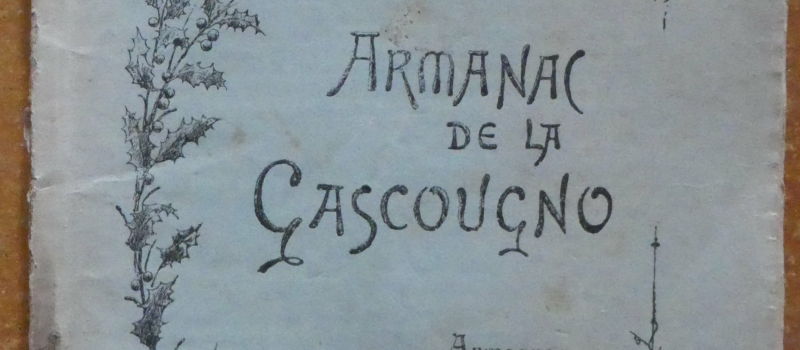 ARMANAC
DE LA
GASCOUGNO